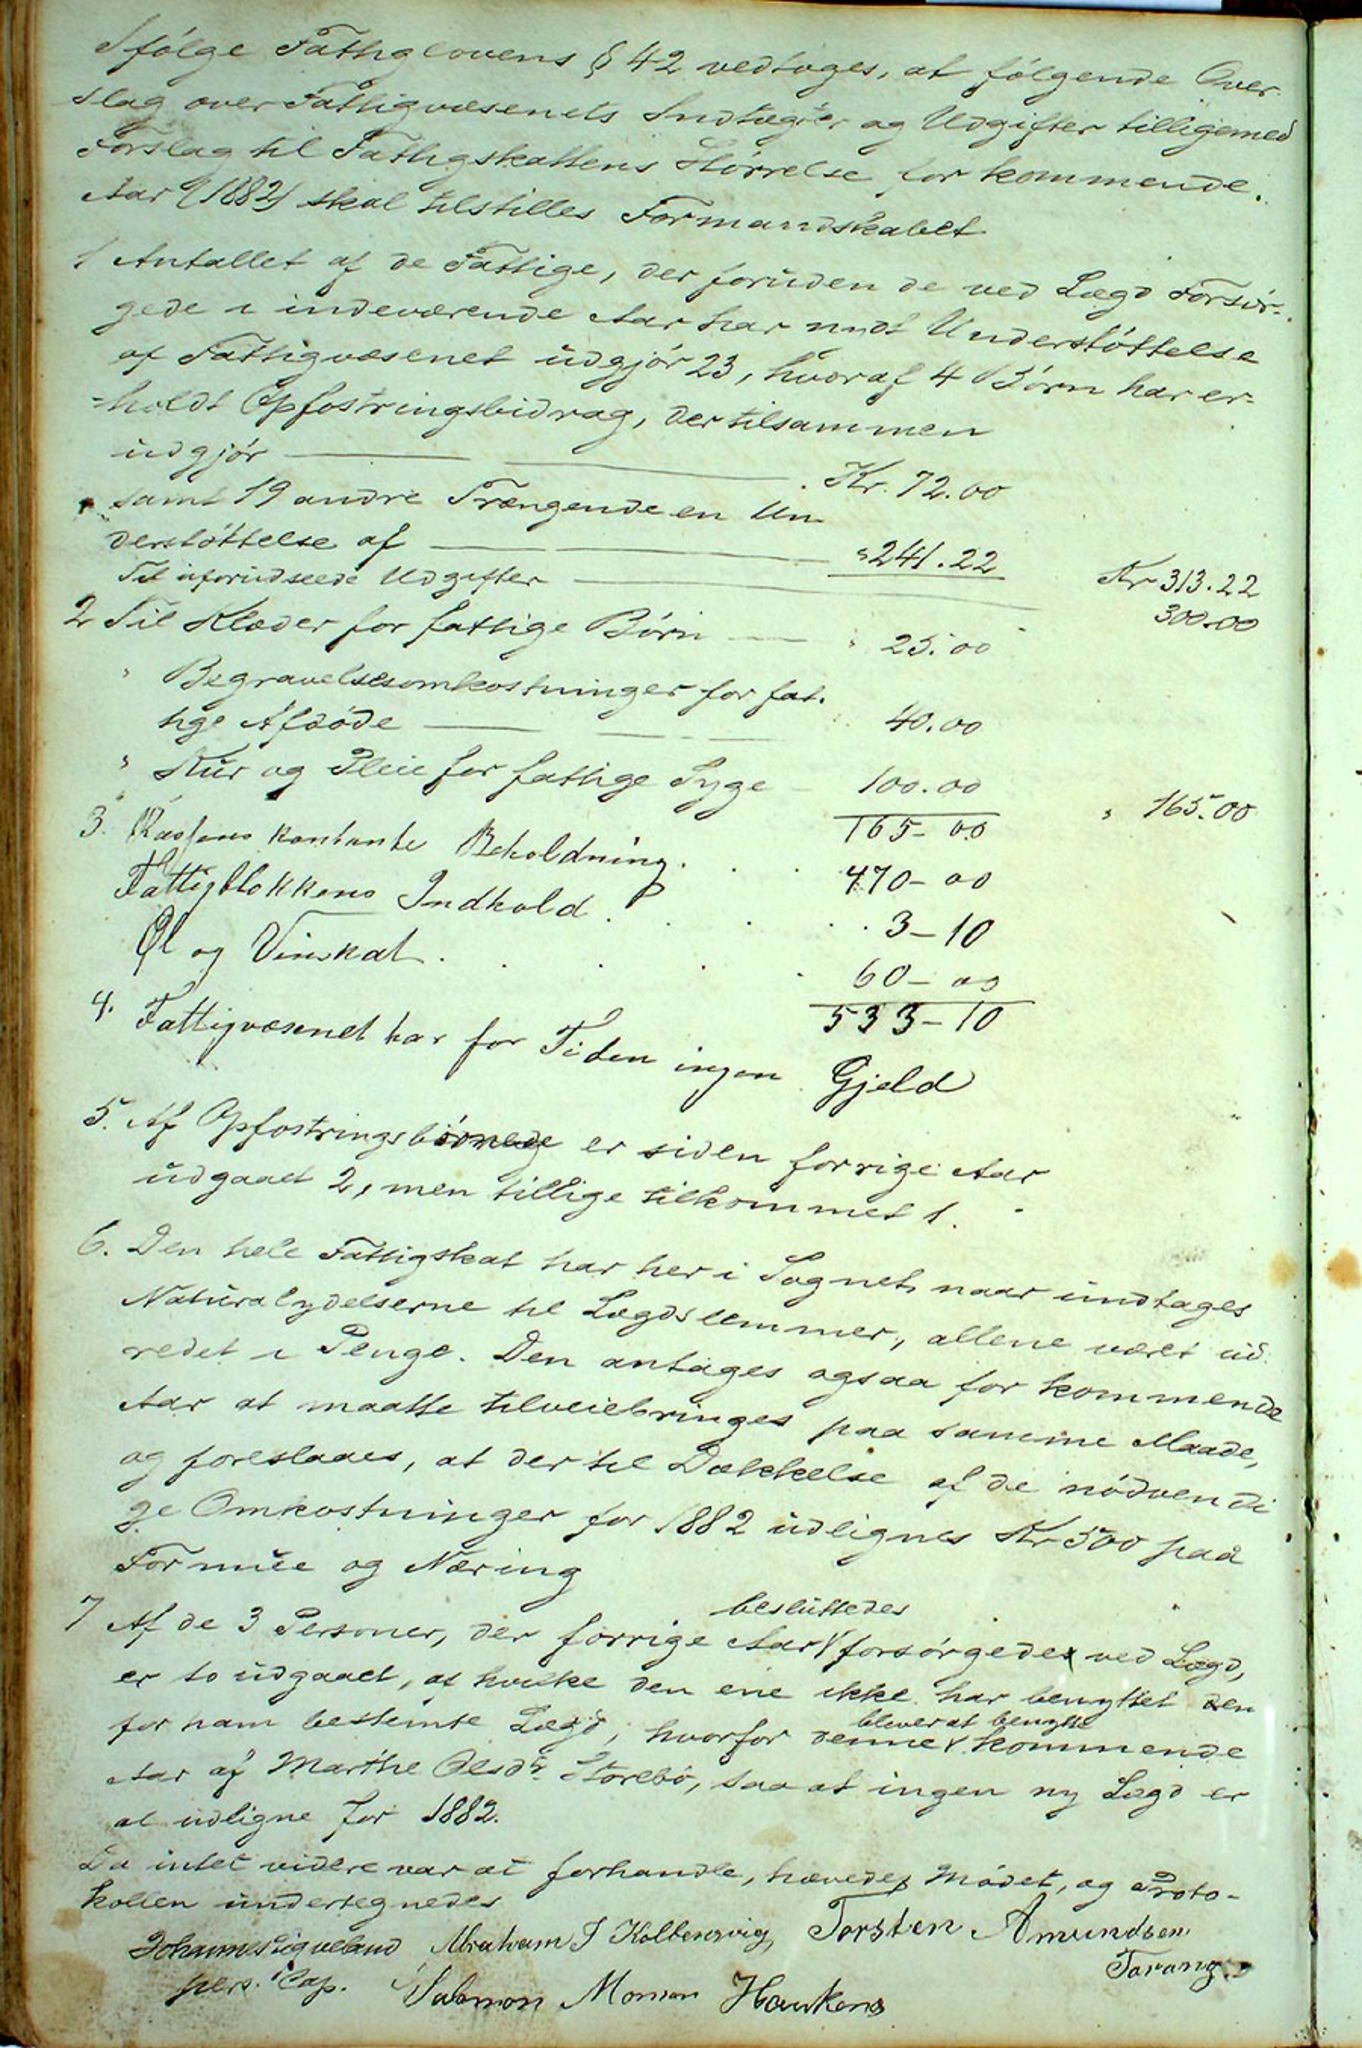 Ifølge Fattiglovens § 42 vedtoges, at følgende Over
slag over Fattigvæsenets Indtægter og Udgifter tilligemed
Forslag til Fattigskattens Størrelse for kommende
Aar (1882) skal tilstilles Formandskabet
1 Antallet af de Fattige, der foruden de ved Lægd Forsør-
gede i indeværende Aar har nydt Understøttelse
af Fattigvæsenet udgjør 23, hvoraf 4 Børn har er-
holdt Opfostringsbidrag, der tilsammen
udgjør Kr. 72.00
samt 19 andre Trængende en Un
derstøttelse af " 241.22 Kr 313.22
Til uforudseede Udgifter 300.00
2 Til Klæder for fattige Børn " 25.00
" Begravelsesomkostninger for fat-
tige Afdøde " 40.00
" Kur og Pleie for fattige Syge 100.00
165-00 " 165.00
3. Kassens kontante Beholdning . . 470-00
Fattigblokkens Indhold . . . . 3-10
Øl og Vinskat . . . . . 60-00
533-10
4. Fattigvæsenet har for Tiden ingen Gjeld
5. Af Opfostringsbørnene er siden forrige Aar
udgaaet 2, men tillige tilkommet 1.
6. Den hele Fattigskat har her i Sognet, naar undtages
Naturalydelserne til Lægdslemmer, allene været ud
redet i Penge. Den antages ogsaa for kommende
Aar at maatte tilveiebringes paa samme Maade,
og foreslaaes, at der til Dækkelse af de nødvendi
ge Omkostninger for 1882 udlignes Kr 500 paa
Formue og Næring
besluttedes
7 Af de 3 Personer, der forrige Aar forsørgedes ved Lægd,
er to udgaaet, af hvilke den ene ikke har benyttet den
for ham bestemte Lægd, hvorfor denne kommende
bliver at benytte
Aar af Marthe Olsdr. Storebø, saa at ingen ny Lægd er
at udligne for 1882.
Da intet videre var at forhandle, hævedes Mødet, og Proto-
kollen undertegnedes
Johannes Ligveland Abraham J Kolbensvig, Torsten Amundsen
pers. Cap. Salomon Monsen Haukens Torang